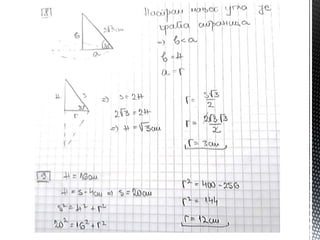 8
2√3cm
b
a
30°
Наспрам мањег угла је
краћа страница
⇒ b<a
b = H
a = r
H
s
r
30°
⇒ s = 2H
2√3 = 2H
⇒ H = √3cm
r = s√3/2
r = 2√3·√3/2
r = 3cm
9
H = 16cm
H = s - 4cm ⇒ s = 20cm
s² = H² + r²
20² = 16² + r²
r² = 400 - 256
r² = 144
r = 12cm